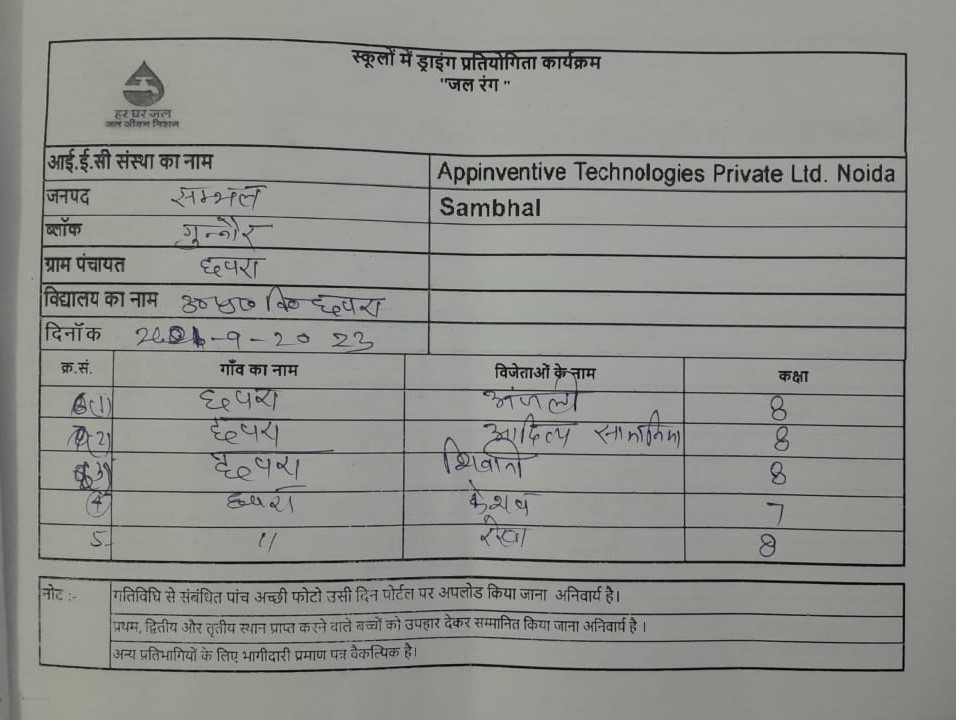 स्कूलों में ड्राइंग प्रतियोगिता कार्यक्रम
"जल रंग "
हर घर जल
जल जीवन मिशन
आई.ई.सी संस्था का नाम Appinventive Technologies Private Ltd. Noida
जनपद सम्भल Sambhal
ब्लॉक गुन्नौर
ग्राम पंचायत छपरा
विद्यालय का नाम छपरा
दिनॉक -9-2023
क्र.सं. गाँव का नाम विजेताओं के नाम कक्षा
(1) छपरा अंजली 8
(2) छपरा आदित्य 8
(3) छपरा शिवानी 8
(4 छपरा केशव 7
5- 11 रेखा 8
नोट :- गतिविधि से संबंधित पांच अच्छी फोटो उसी दिन पोर्टल पर अपलोड किया जाना अनिवार्य है।
प्रथम, द्वितीय और तृतीय स्थान प्राप्त करने वाले बच्चों को उपहार देकर सम्मानित किया जाना अनिवार्य है ।
अन्य प्रतिभागियों के लिए भागीदारी प्रमाण पत्र वैकल्पिक है।